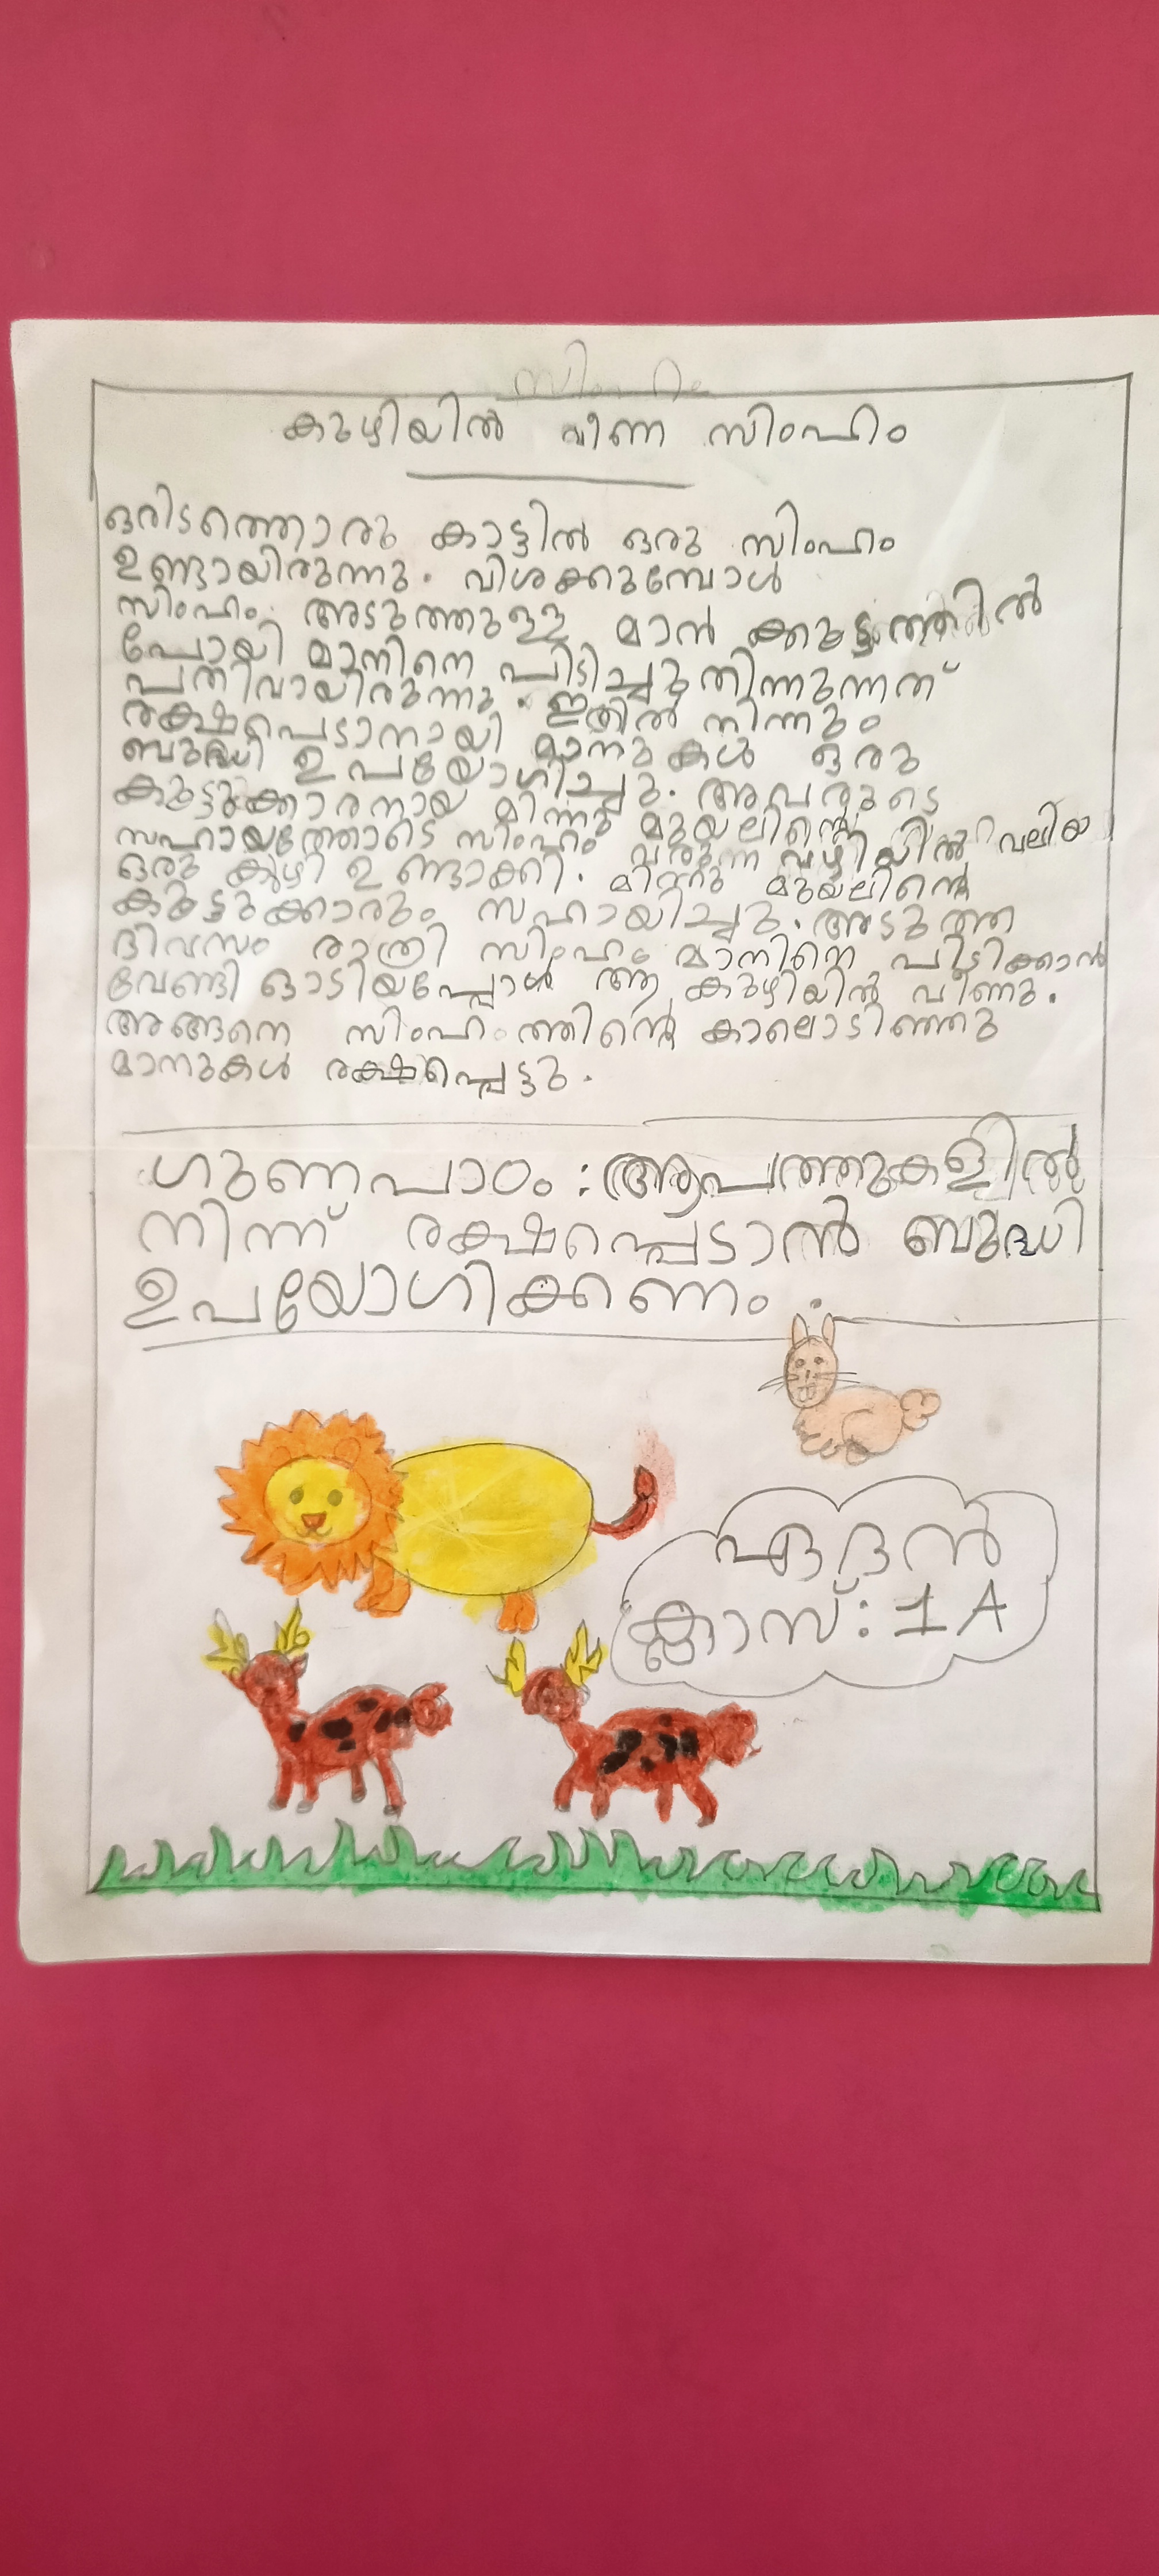 കുഴിയിൽ വീണ സിംഹം
ഒരിടത്തൊരു കാട്ടിൽ ഒരു സിംഹം
ഉണ്ടായിരുന്നു. വിശക്കുമ്പോൾ
സിംഹം അടുത്തുള്ള മാൻ ക്കൂട്ടത്തിൽ
പോയി മാനിനെ പിടിച്ചു തിന്നുന്നത്
പതിവായിരുന്നു. ഇതിൽ നിന്നും
രക്ഷപെടാനായി മാനുകൾ ഒരു
ബുദ്ധി ഉപയോഗിച്ചു. അവരുടെ
കൂട്ടുക്കാരനായ മിന്നു മുയലിന്റെ
സഹായത്തോടെ സിംഹം വരുന്ന വഴിയിൽ വലിയ
ഒരു കുഴി ഉണ്ടാക്കി. മിന്നു മുയലിന്റെ
കൂട്ടുക്കാരും സഹായിച്ചു. അടുത്ത
ദിവസം രാത്രി സിംഹം മാനിനെ പിടിക്കാൻ
വേണ്ടി ഓടിയപ്പോൾ ആ കുഴിയിൽ വീണു.
അങ്ങനെ സിംഹംത്തിന്റെ കാലൊടിഞ്ഞു
മാനുകൾ രക്ഷപ്പെട്ടു.
ഗുണപാഠം : ആപത്തുകളിൽ
നിന്ന് രക്ഷപ്പെടാൻ ബുദ്ധി
ഉപയോഗിക്കണം.
ഏദൻ
ക്ലാസ് : 1 A